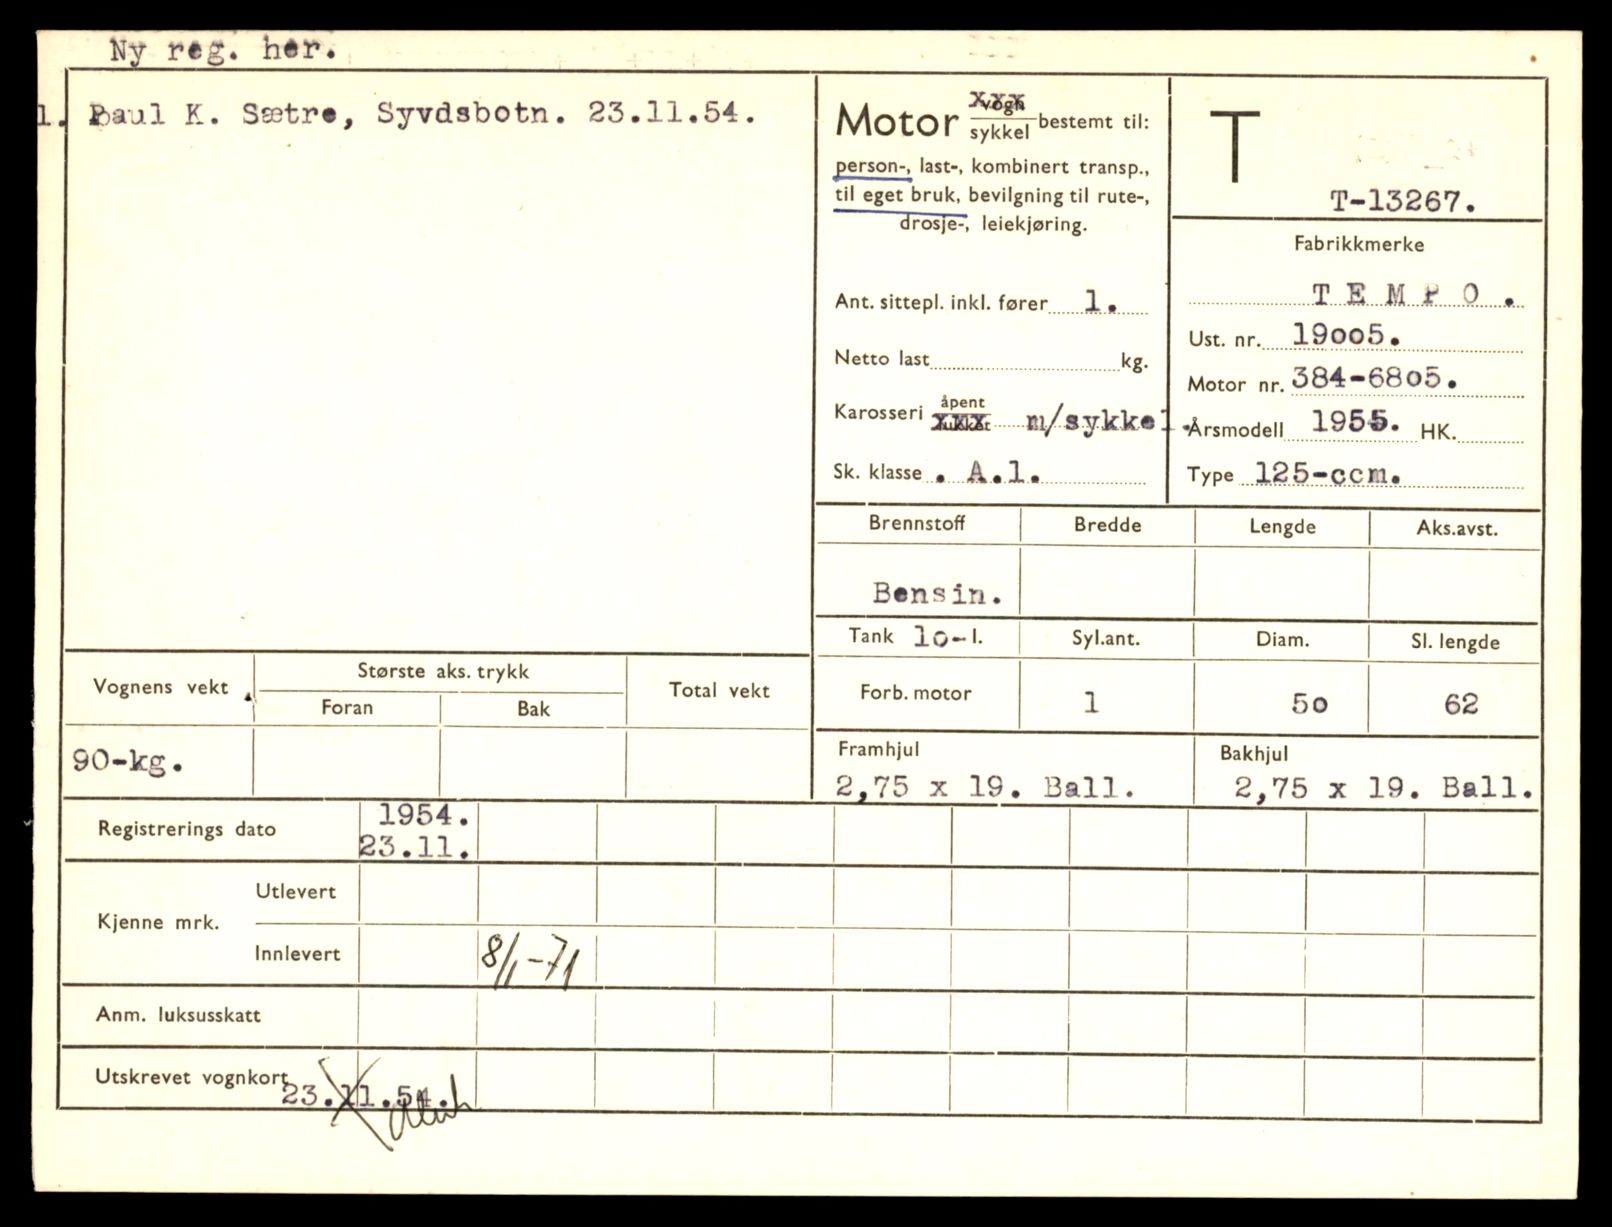 Ny reg. her.
1. Paul K. Sætre, Syvdsbotn. 23.11.54.
Motor vogn xxx
sykkel bestemt til:
person-, last-, kombinert transp.,
til eget bruk, bevilgning til rute-,
drosje-, leiekjøring.
Ant. sittepl. inkl. fører 1.
Netto last kg.
Karosseri åpent
lukket xxx m/sykkel.
Sk. klasse . A.1.
T
T-13267.
Fabrikkmerke
T E M P O .
Ust. nr. 19005.
Motor nr. 384-6805.
Årsmodell 1955. HK.
Type 125-ccm.
Brennstoff Bredde Lengde Aks.avst.
Bensin.
Tank 10- l. Syl.ant. Diam. Sl. lengde
Forb. motor 1 50 62
Framhjul Bakhjul
2,75 x 19. Ball. 2,75 x 19. Ball.
Vognens vekt Største aks. trykk Total vekt
Foran Bak
90-kg.
Registrerings dato 1954.
23.11.
Kjenne mrk. Utlevert
Innlevert 8/1-71
Anm. luksusskatt
Utskrevet vognkort 23.11.54.